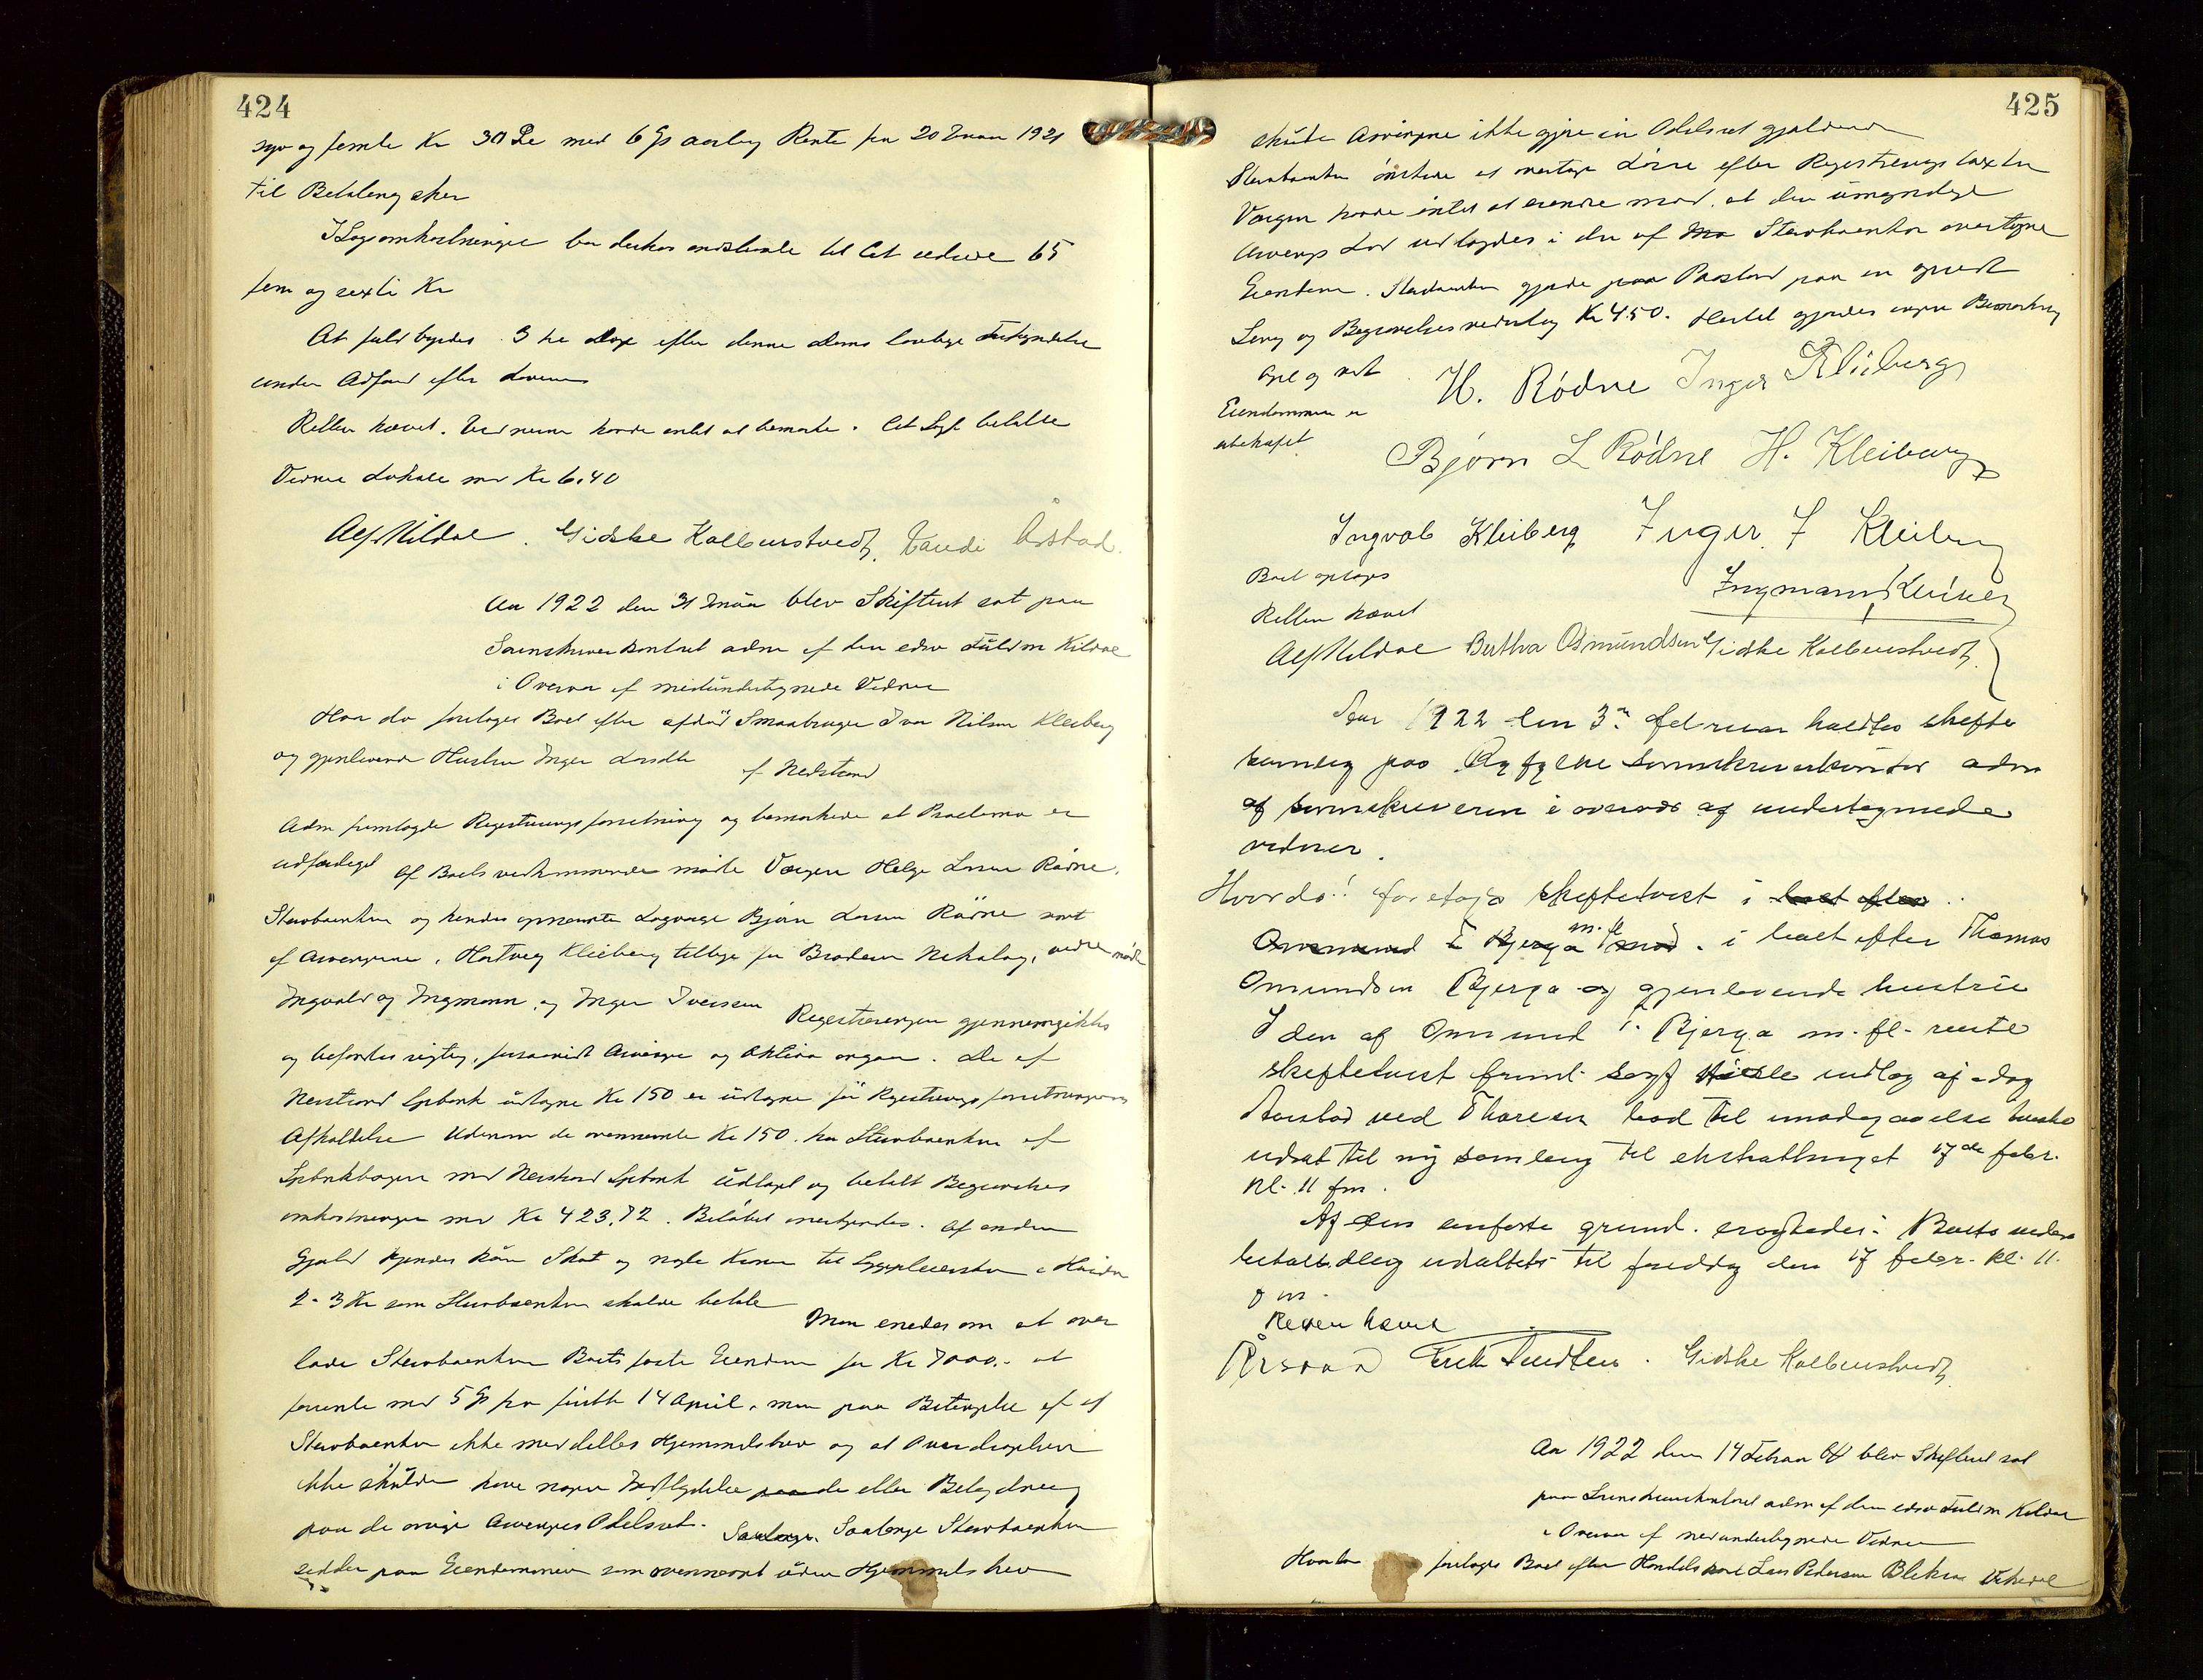 424
syv og femte Kr 30 Øre med 6 % aarlig Rente fra 20 Januar 1921
til Betaling sker
I Sagsomkostninger bør derhos indstevnte til Cit udrede 65
fem og sexti Kr
At fuldbyrdes 3 tre Dage efter denne Doms lovlige Forkyndelse
under Adfærd efter Loven
Retten hævet. Vidnerne havde intet at bemærke. Cit Sagf betalte
Vidner Lokale med Kr 6,40
Alf Kildal. Gidske Kolbenstvedt. Vandi Årstad.
Aar 1922 den 31 Januar blev Skifteret sat paa
Sorenskriverkontoret adm af den edsv Fuldm Kildal
i Overvær af medundertegnede Vidner
Hvor da foretoges Boet efter afdød Smaabruger Ivar Nilsen Kleiberg
og gjenlevende Hustru Inger Larsdtr af Nedstrand
Adm fremlagde Registreringsforretning og bemærkede at Proclama er
udfærdiget Af Boets vedkommende mødte Værgen Helge Larsen Rødne.
Stervboenken og hendes opnævnte Lagværge Bjørn Larsen Rødne samt
af Arvingerne, Hartvig Kleiberg tillige for Broderen Nikolay, videre mødte
Ingvald og Ingmann, og Inger Iversen Registreringen gjennemgikks
og befandtes rigtig, forsaavidt Arvinger og Aktiva angaar. De af
Nerstrand Spbank udtagne Kr 150 er udtagne før Registreringsforretningens
Afholdelse Udenom de ovennævnte Kr 150. har Stervboenken af
Spbankbogen med Nerstrand Spbank udtaget og betalt Begravelses
omkostninger med Kr 423,72. Beløbet anerkjendtes. Af anden
Gjæld kjendes kun Skat og nogle Kroner til Sygepleiersken i Hinder
2-3 Kr som Stervboenken skulde betale Man enedes om at over
lade Stervboenken Boets faste Eiendom for Kr 7000,- at
forrente med 5 % fra førstk 14 April, men paa Betingelse af at
Stervboenken ikke meddelles Hjemmelsbrev og at Overdragelsen
ikke skulde have nogen Indflydelse paa de eller Betydning
paa de øvrige Arvingers Odelsret. Saalenge. Saalenge Stervboenken
sidder paa Eiendommen som ovennævnt uden Hjemmelsbrev
425
skulde Arvingene ikke gjøre sin Odelsret gjældende
Stervboenken ønskede at overtage Løsøre efter Registreringstaxten
Værgen havde intet at erindre mod, at den umyndige
Arvings Lod udlagdes i den af Stervboenken overtagne
Eiendom. Stervboenken gjorde paa Paastand paa en opredt
Seng og Begravelsesvederlag Kr 450. Hertil gjordes ingen Bemærkning
Opl og vedt
Eiendommen er
ubehæftet.
H. Rødne Inger Kleiberg
Bjørn L Rødne H. Kleiberg
Ingvald Kleiberg Inger. I Kleiberg
Boet optages
Retten hævet
Ingmann Kleiberg
Alf Kildal Bertha Osmundsen Gidske Kolbenstvedt.
Aar 1922 den 3. februar holdtes skifte
samling paa Ryfylke Sorenskriverkontor adm
af sorenskriveren i overvær af undertegnede
vidner.
Hvorda: foretoges skiftetvist i boet efter
Ommund T Bjerga m. fl. mod. i boet efter Thomas
Omundsen Bjerga og gjenlevende hustru
I den af Ommund T. Bjerga m. fl. reiste
skiftetvist fremt. sagf indlæg af idag
Aarstad ved Thoresen bad til imødegaaelse herpaa
udsat til ny samling til ekstrathinget 17de febr.
kl. 11 fm.
Af den anførte grund. eragtedes: Boets videre
behandling udsættes til fredag den 17 febr. kl. 11.
fm.
Retten hævet
Årstad Gidske Kolbenstvedt
Aar 1922 den 14 Februar blev Skifteret sat
paa Sorenskriverkontoret adm af den edsv Fuldm Kildal
i Overvær af medundertegnede Vidner
Hvor da foretoges Boet efter Handelsmand Lars Pedersen Vikedal